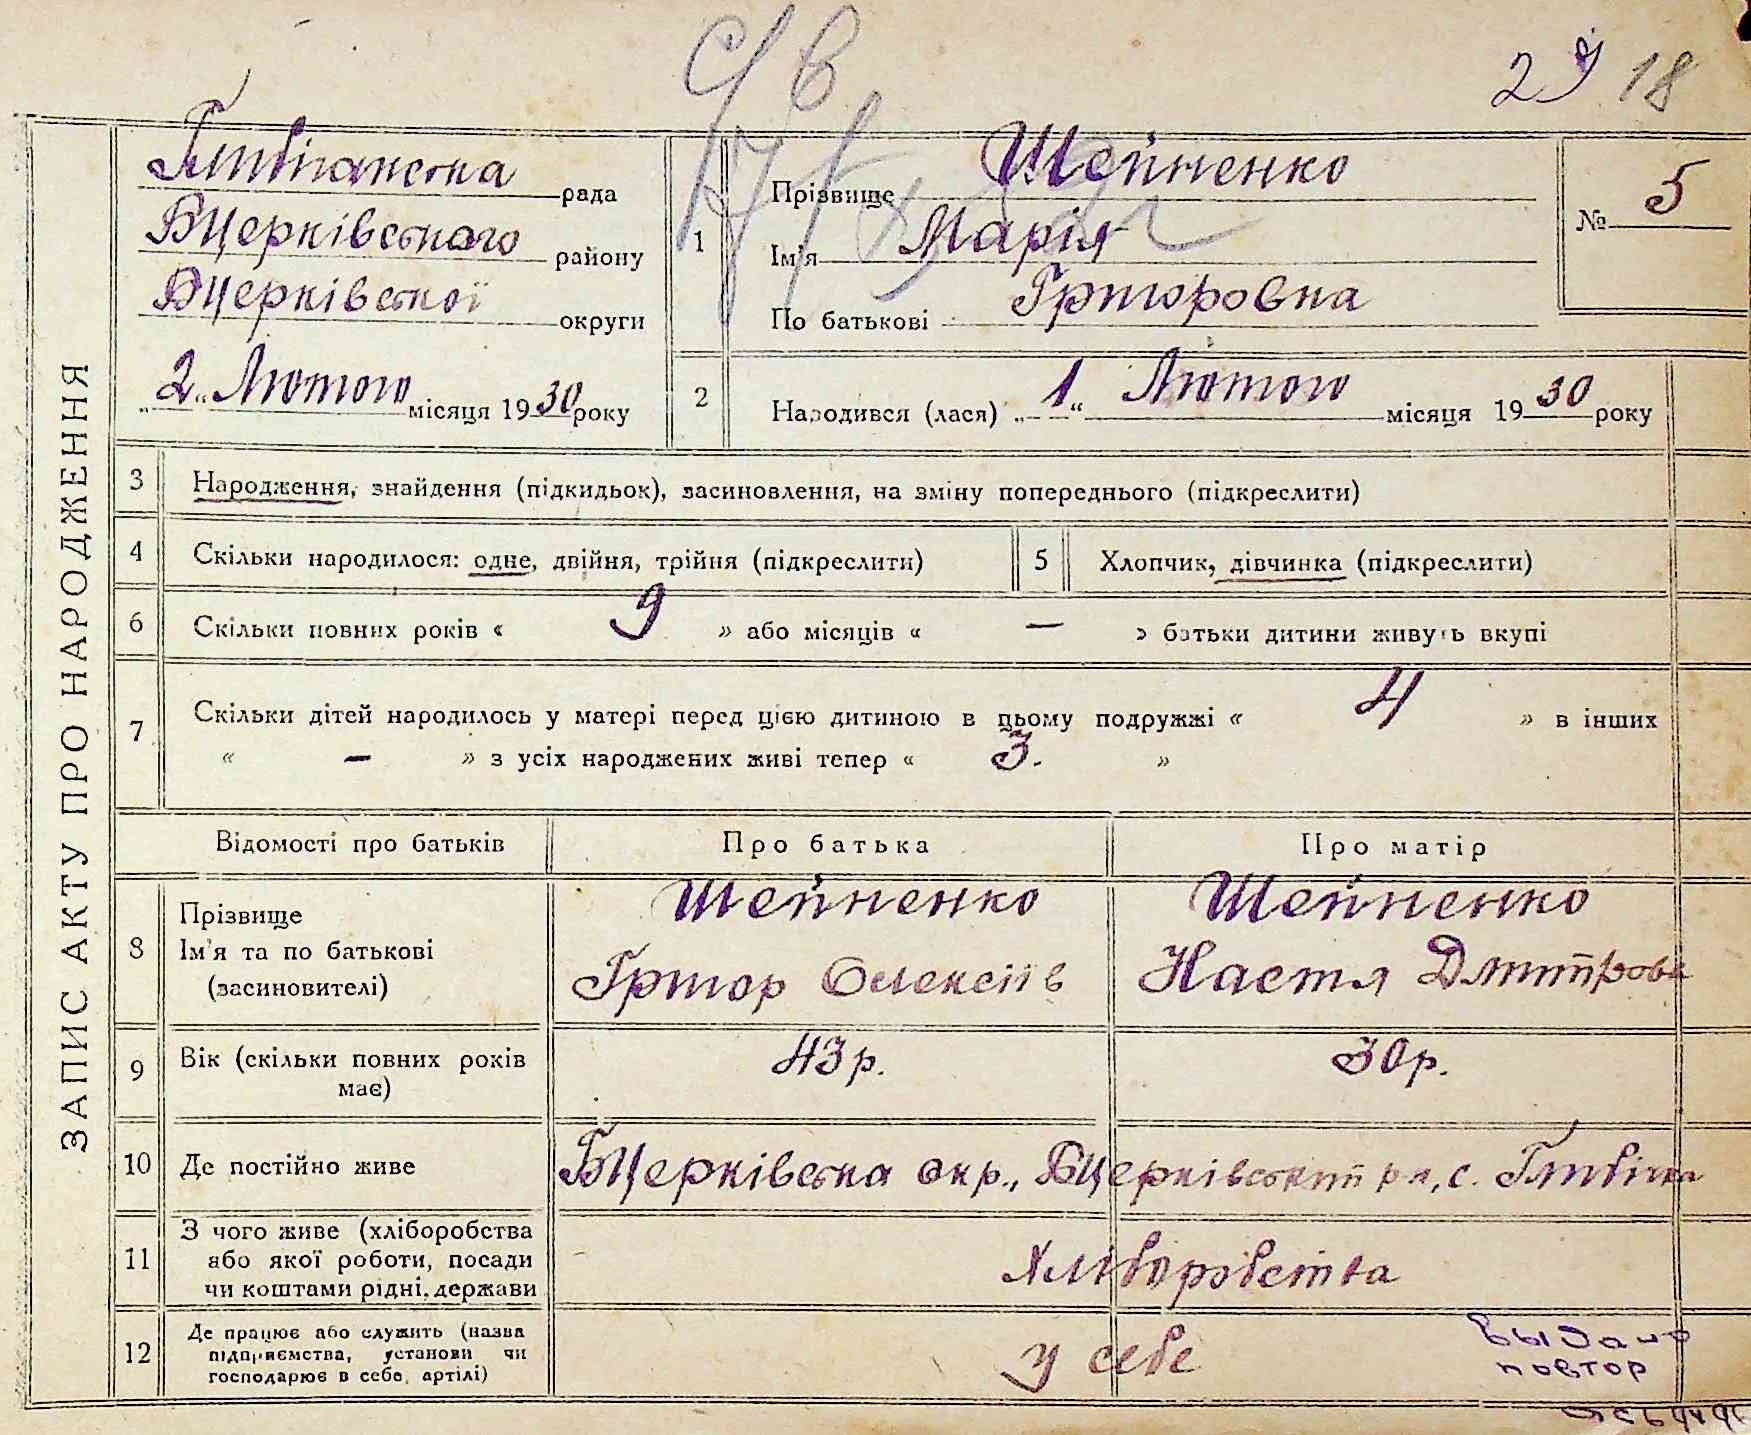 29 18
ЗАПИС АКТУ ПРО НАРОДЖЕННЯ
Глибічанська рада
БЦерківського району
БЦерківської округи
„2“ Лютого місяця 1930 року
1 Прізвище Шейненко
Ім'я Марія
По батькові Григоровна
№ 5
2 Народився (лася) „1“ Лютого місяця 1930 року
3 Народження, знайдення (підкидьок), засиновлення, на зміну попереднього (підкреслити)
4 Скільки народилося: одне, двійня, трійня (підкреслити)
5 Хлопчик, дівчинка (підкреслити)
6 Скільки повних років « 9 » або місяців « — » батьки дитини живуть вкупі
7 Скільки дітей народилось у матері перед цією дитиною в цьому подружжі « 4 » в інших
« — » з усіх народжених живі тепер « 3. »
Відомості про батьків Про батька Про матір
8 Прізвище Шейненко Шейненко
Ім'я та по батькові Григор Олексіїв Настя Дмитрова
(засиновителі)
9 Вік (скільки повних років має) 43 р. 30 р.
10 Де постійно живе БЦерківська окр., БЦерківський р-н, с. Глибічка
11 З чого живе (хліборобства
або якої роботи, посади
чи коштами рідні, держави
Хліборобства
12 Де працює або служить (назва
підприємства, установи чи
господарює в себе, артілі)
у себе
выдано
повтор